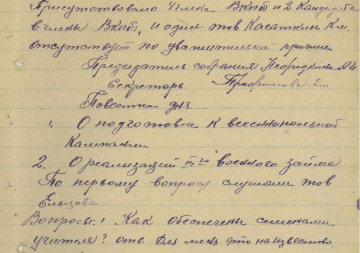 Присутствовало членов Вкпб, и 2 Кандидата
в члены Вкпб, и один тов Касаткин Ал.
отсутствует по уважительна причин
Председатель собрания
Секретарь
Повестка дня
1. О подготовке к весеннепольной
Кампании
2. О реализаций III го военного займа
По первому вопросу слушали тов
Ельцова
Вопросы: 1 Как обеспечены семенами
учителя? отв. Для меня это неизвестно